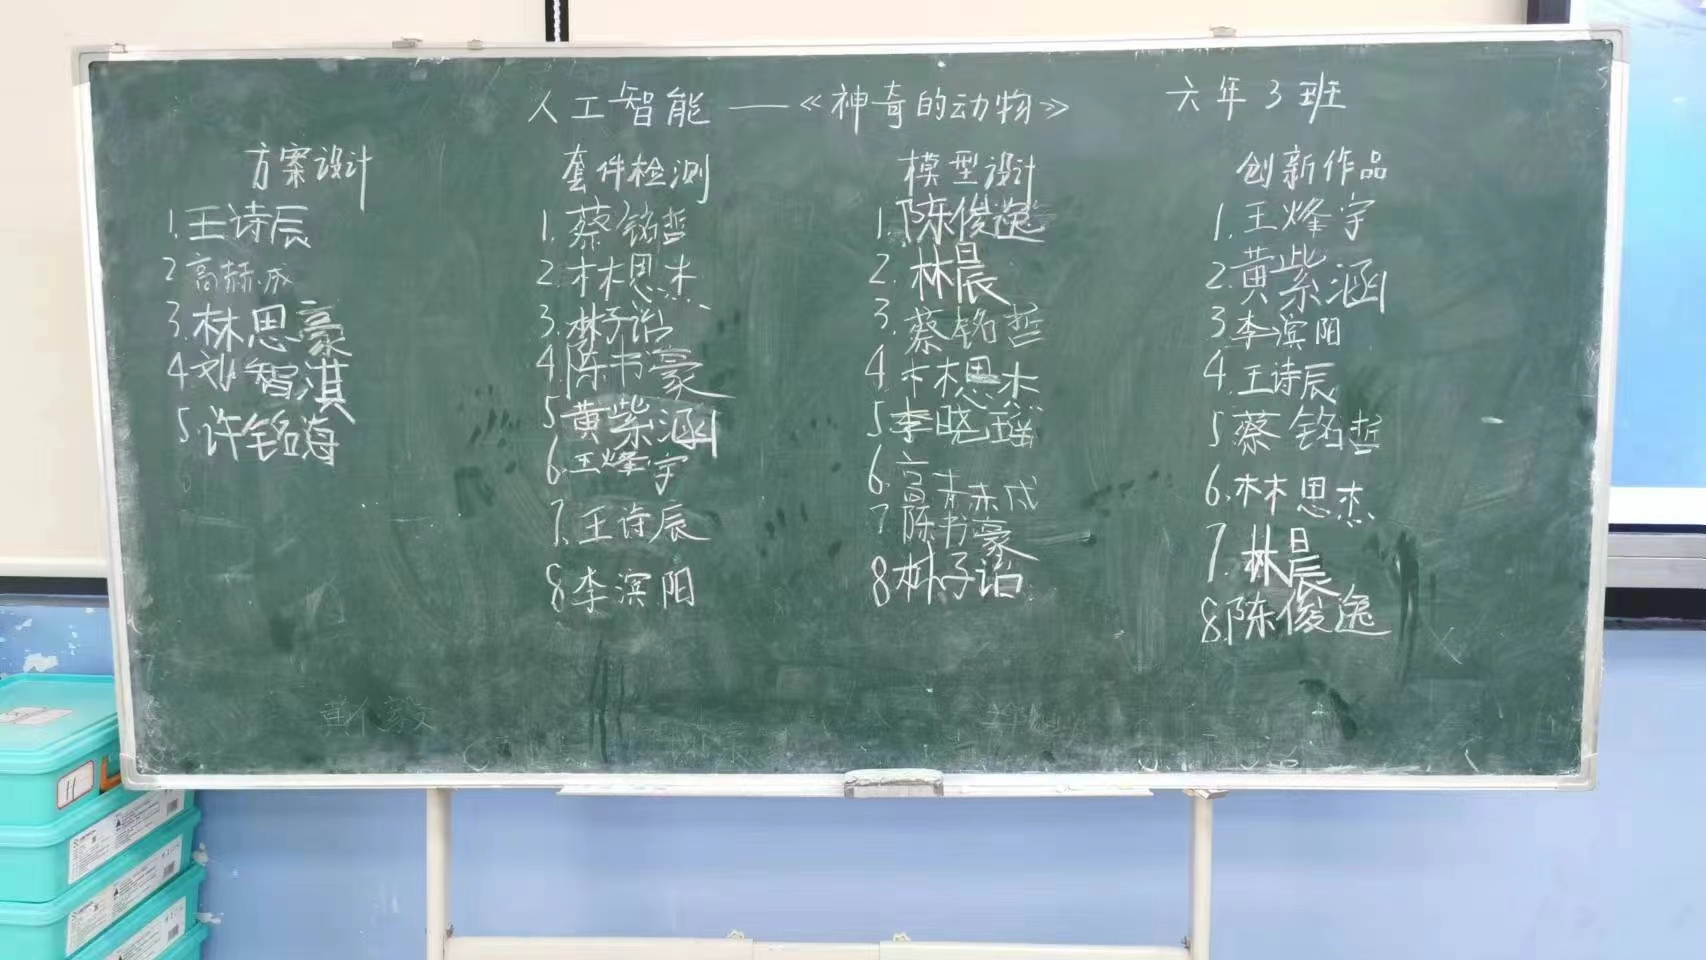 人工智能——《神奇的动物》 六年3班
方案设计
1.王诗辰
2高赫成
3.林思豪
4刘智淇
5.许铭海
套件检测
1.蔡铭哲
2.林思杰
3.林子诒
4.陈书豪
5黄紫涵
6.王烽宇
7.王诗辰
8李滨阳
模型设计
1.陈俊逸
2.林晨
3.蔡铭哲
4.林思杰
5李晓瑶
6.高赫成
7陈书豪
8林子诒
创新作品
1.王烽宇
2.黄紫涵
3李滨阳
4.王诗辰
5蔡铭哲
6.林思杰
7.林晨
8.陈俊逸